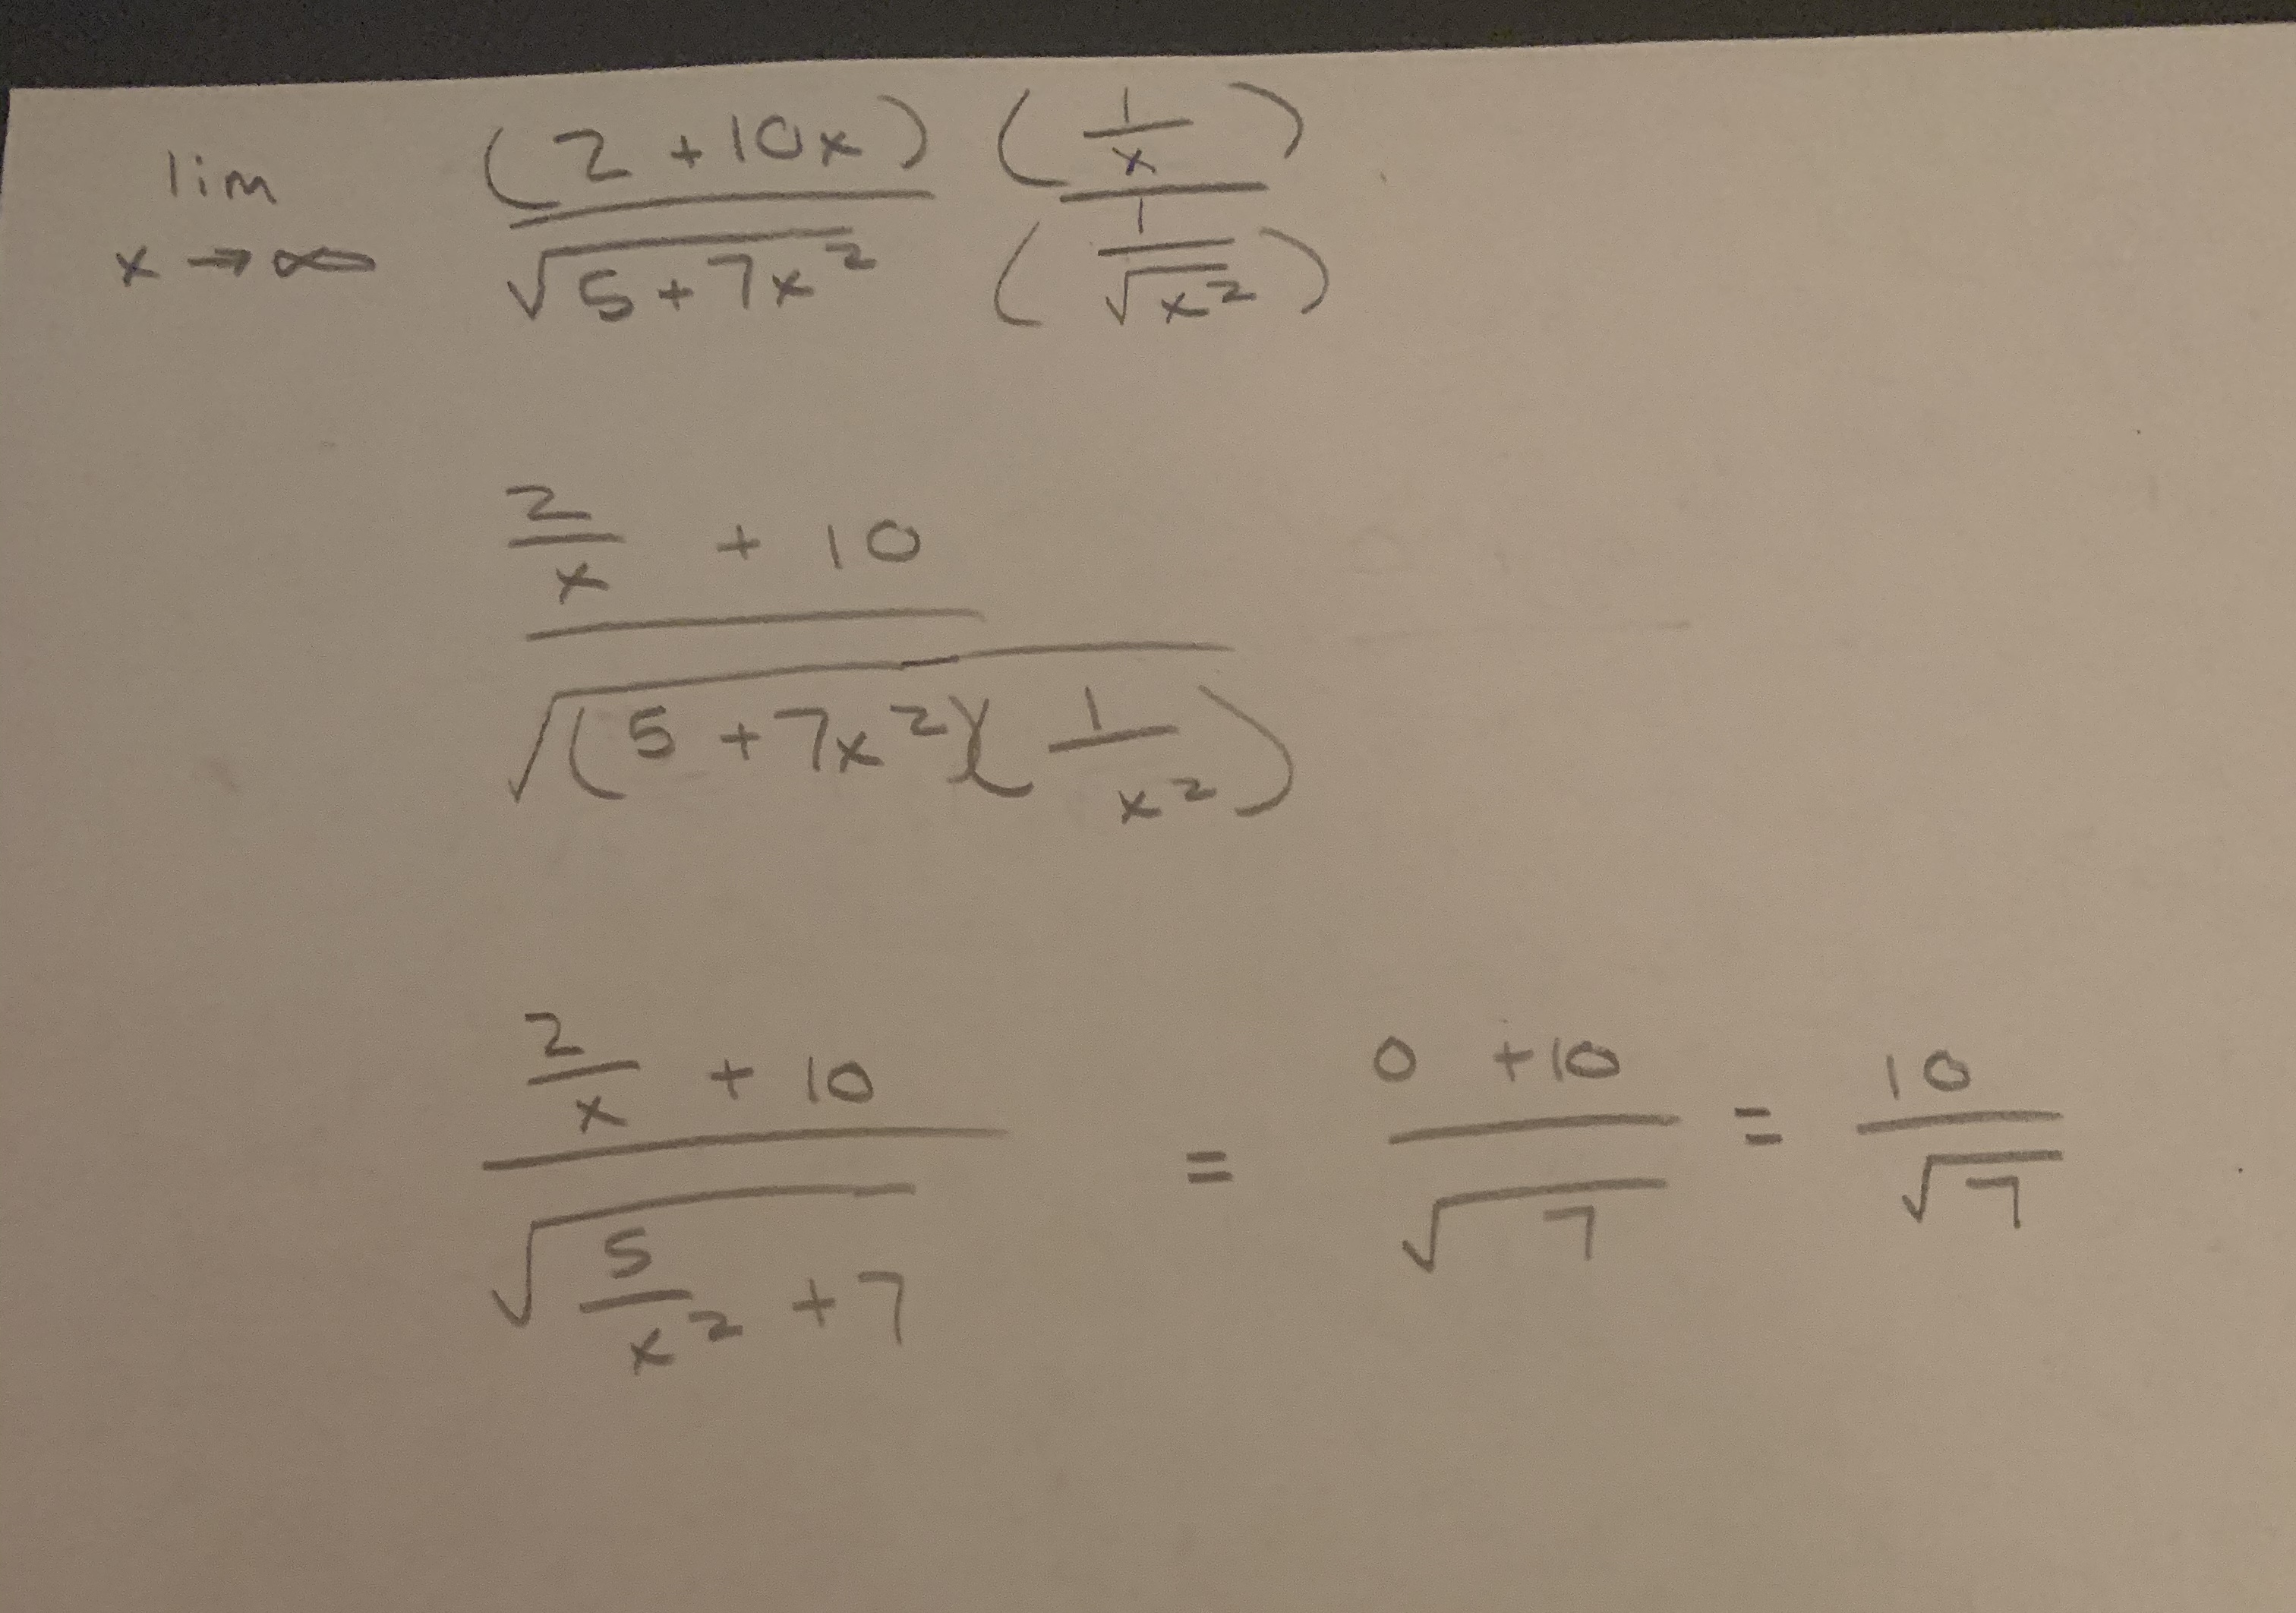 lim x→∞ (2 + 10x)/√(5 + 7x²) (1/x)/(1/√x²)
(2/x + 10)/√((5 + 7x²)(1/x²))
(2/x + 10)/√(5/x² + 7) = (0 + 10)/√7 = 10/√7